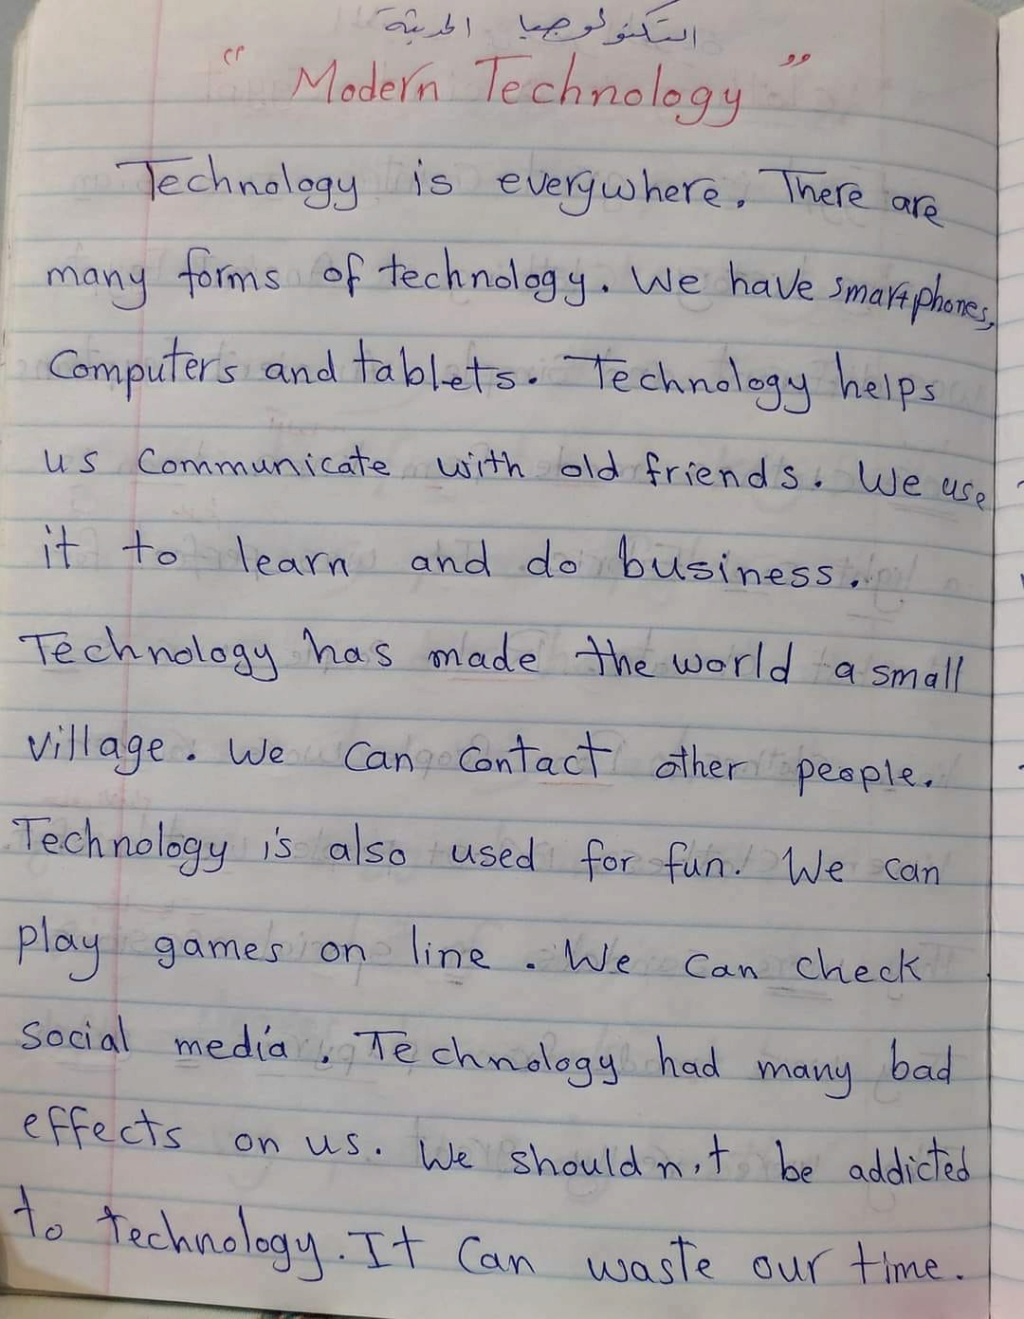 التكنولوجيا الحديثة
" Modern Technology "
Technology is everywhere. There are
many forms of technology. We have smartphones,
Computers and tablets. Technology helps
us Communicate with old friends. We use
it to learn and do business.
Technology has made the world a small
village. We can contact other people.
Technology is also used for fun. We can
play games on line. We can check
social media. Technology had many bad
effects on us. We shouldn't be addicted
to technology. It can waste our time.